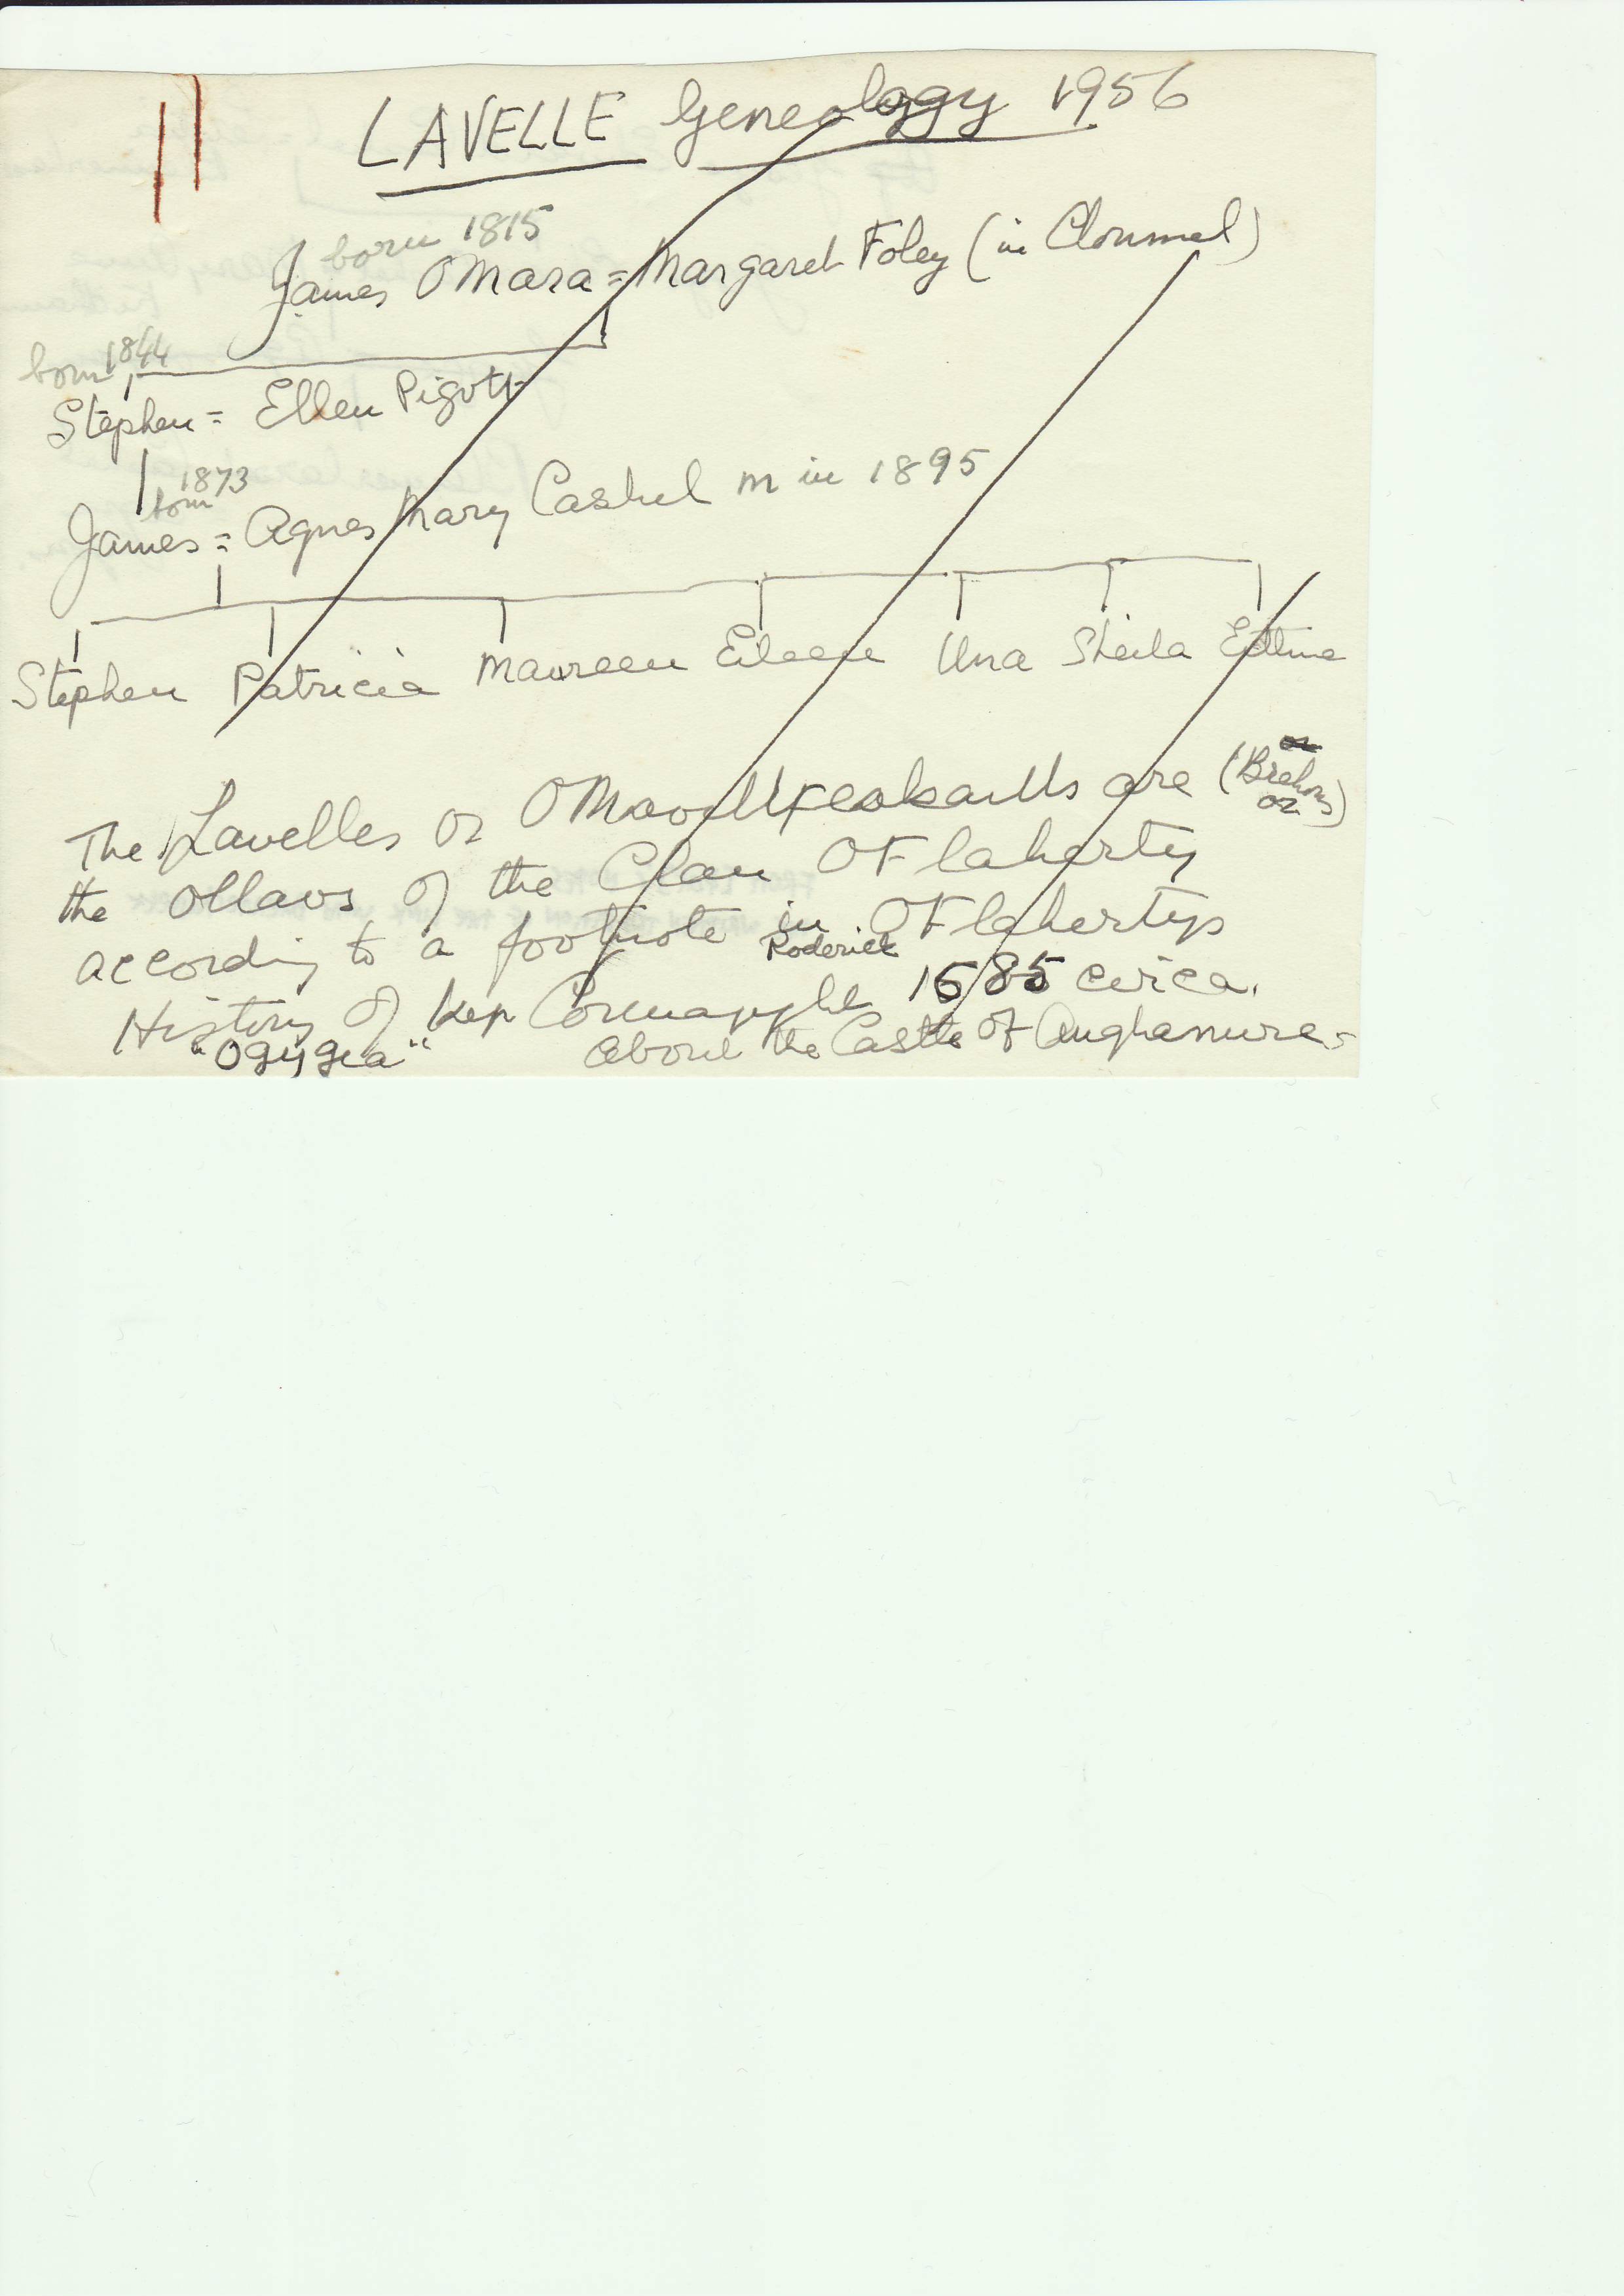 LAVELLE Geneology 1956
born 1815
James OMara = Margaret Foley (in Clonmel)
born 1844
Stephen = Ellen Pigott
born 1873
James = Agnes Mary Cashel m in 1895
Stephen Patricia Maureen Eileen Una Sheila Ethne
The Lavelles or are (Brehons or)
the Ollavs of the Clan OFlaherty
according to a footnote in Roderick OFlahertys
History of 1685 circa.
"Ogygia" about the Castle of Aughanure